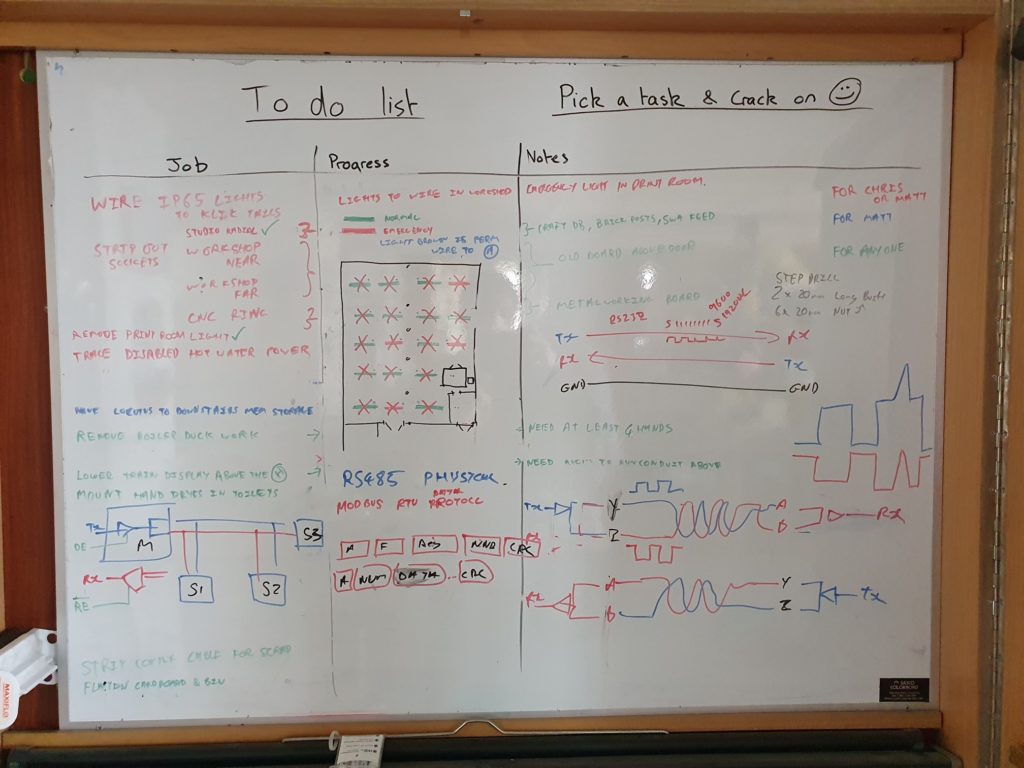 To do list
Pick a task & Crack on
Job
Progress
Notes
WIRE IP65 LIGHTS
TO KLIK TAILS
STUDIO RADIAL ✓
STRIP OUT
SOCKETS
WORKSHOP
NEAR
WORKSHOP
FAR
CNC RING
REMOVE PRINT ROOM LIGHT ✓
TRACE DISABLED HOT WATER POWER
TO DOWNSTAIRS MEM STORAGE
REMOVE BOILER DUCK WORK
LOWER TRAIN DISPLAY ABOVE THE
MOUNT HAND DRYES IN TOILETS
Tx
DE
M
Rx
RE
S1
S2
S3
STRIP CABLE FOR SCRAP
FLATTEN CARDBOARD & BIN
LIGHTS TO WIRE IN
NORMAL
EMERGENCY
LIGHT BROWN IS PERM
WIRE TO A
RS485 PHYSICAL
MODBUS RTU DATA PROTOCOL
A F CRC
A NUM DATA ... CRC
EMERGENCY LIGHT IN PRINT ROOM.
CRAFT DB, BRICK POSTS, SWA FEED
OLD BOARD ABOVE DOOR
METALWORKING BOARD
FOR CHRIS
OR MATT
FOR MATT
FOR ANYONE
STEP DRILL
2 x 20mm Long Bush
6 x 20mm
RS232
9600
19200
Tx
Rx
Rx
Tx
GND
GND
NEED AT LEAST 4 HANDS
NEED TO RUN CONDUIT ABOVE
Tx
Y
Z
A
B
Rx
Rx
A
B
Y
Z
Tx